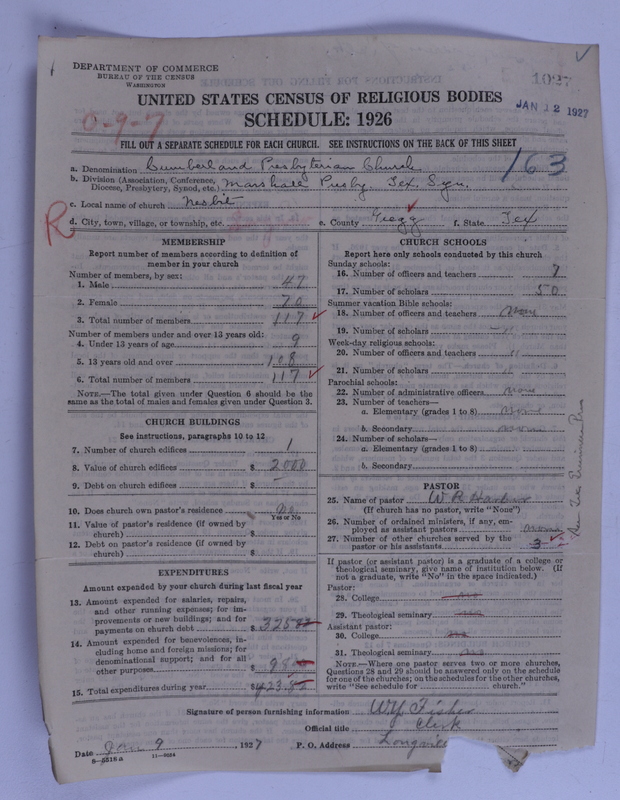 DEPARTMENT OF COMMERCE
BUREAU OF THE CENSUS
WASHINGTON
1027
JAN 12 1927
UNITED STATES CENSUS OF RELIGIOUS BODIES
SCHEDULE: 1926
0-9-7
FILL OUT A SEPARATE SCHEDULE FOR EACH CHURCH. SEE INSTRUCTIONS ON THE BACK OF THIS SHEET
163
a. Denomination Cumberland Presbyterian Church
b. Division (Association, Conference, Diocese, Presbytery, Synod, etc.) Marshall Presby. Tex. Syn.
c. Local name of church Nesbit
R
d. City, town, village, or township, etc.
e. County Gregg f. State Tex
MEMBERSHIP
Report number of members according to definition of
member in your church
Number of members, by sex:
1. Male 47
2. Female 70
3. Total number of members 117
Number of members under and over 13 years old:
4. Under 13 years of age 9
5. 13 years old and over 108
6. Total number of members 117
NOTE.—The total given under Question 6 should be the
same as the total of males and females given under Question 3.
CHURCH BUILDINGS
See instructions, paragraphs 10 to 12
7. Number of church edifices 1
8. Value of church edifices $ 2000
9. Debt on church edifices $
10. Does church own pastor's residence? no
Yes or No
11. Value of pastor's residence (if owned by
church) $
12. Debt on pastor's residence (if owned by
church) $
EXPENDITURES
Amount expended by your church during last fiscal year
13. Amount expended for salaries, repairs,
and other running expenses; for im-
provements or new buildings; and for
payments on church debt $ 325 82
14. Amount expended for benevolences, in-
cluding home and foreign missions; for
denominational support; and for all
other purposes $ 98 00
15. Total expenditures during year $ 423.82
CHURCH SCHOOLS
Report here only schools conducted by this church
Sunday schools:
16. Number of officers and teachers 7
17. Number of scholars 50
Summer vacation Bible schools:
18. Number of officers and teachers None
19. Number of scholars "
Week-day religious schools:
20. Number of officers and teachers "
21. Number of scholars "
Parochial schools:
22. Number of administrative officers None
23. Number of teachers—
a. Elementary (grades 1 to 8) None
b. Secondary None
24. Number of scholars—
a. Elementary (grades 1 to 8)
b. Secondary
PASTOR
25. Name of pastor W R
(If church has no pastor, write "None")
26. Number of ordained ministers, if any, em-
ployed as assistant pastors None
27. Number of other churches served by the
pastor or his assistants 3
If pastor (or assistant pastor) is a graduate of a college or
theological seminary, give name of institution below. (If
not a graduate, write "No" in the space indicated.)
Pastor:
28. College
29. Theological seminary
Assistant pastor:
30. College
31. Theological seminary
NOTE.—Where one pastor serves two or more churches,
Questions 28 and 29 should be answered only on the schedule
for one of the churches; on the schedules for the other churches,
write "See schedule for church."
Signature of person furnishing information W Y Fisher
Official title Clerk
Date Jan 9, 1927 P. O. Address Longview
8—5518 a 11—9224